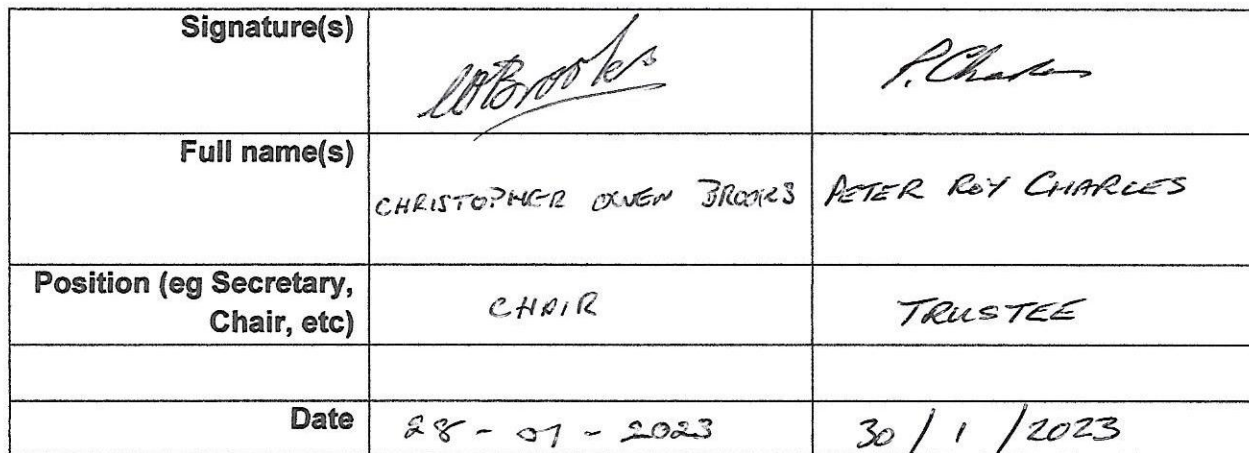 Signature(s) COBrooks P. Charles
Full name(s)
CHRISTOPHER OWEN BROOKS PETER ROY CHARLES
Position (eg Secretary, CHAIR TRUSTEE
Chair, etc)
Date 28 - 01 - 2023 30 / 1 / 2023